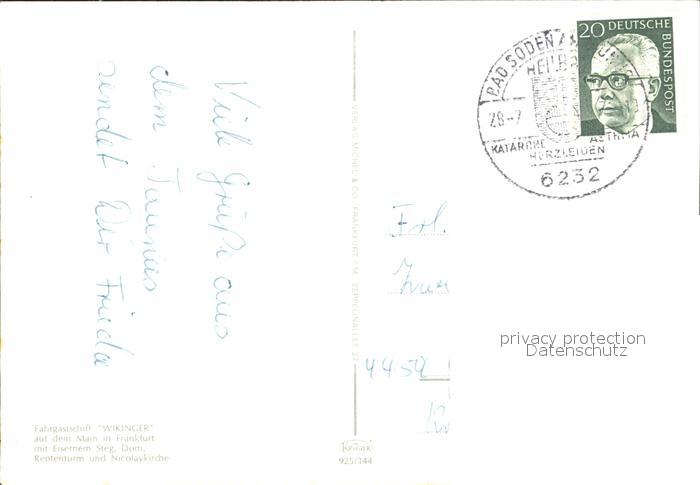 Viele Grüße aus
dem Taunus
sendet Dir Frieda
Fahrgastschiff "WIKINGER"
auf dem Main in Frankfurt
mit Eisernem Steg, Dom,
Rententurm und Nicolaykirche
VERLAG MICHEL & CO. FRANKFURT / M. ZEPPELINALLEE 27
KRÜGER
925/144
BAD SODEN
HEILB
28-7
KATARRHE ASTHMA
HERZLEIDEN
6232
20 DEUTSCHE
BUNDESPOST
Frl.
4459
privacy protection
Datenschutz